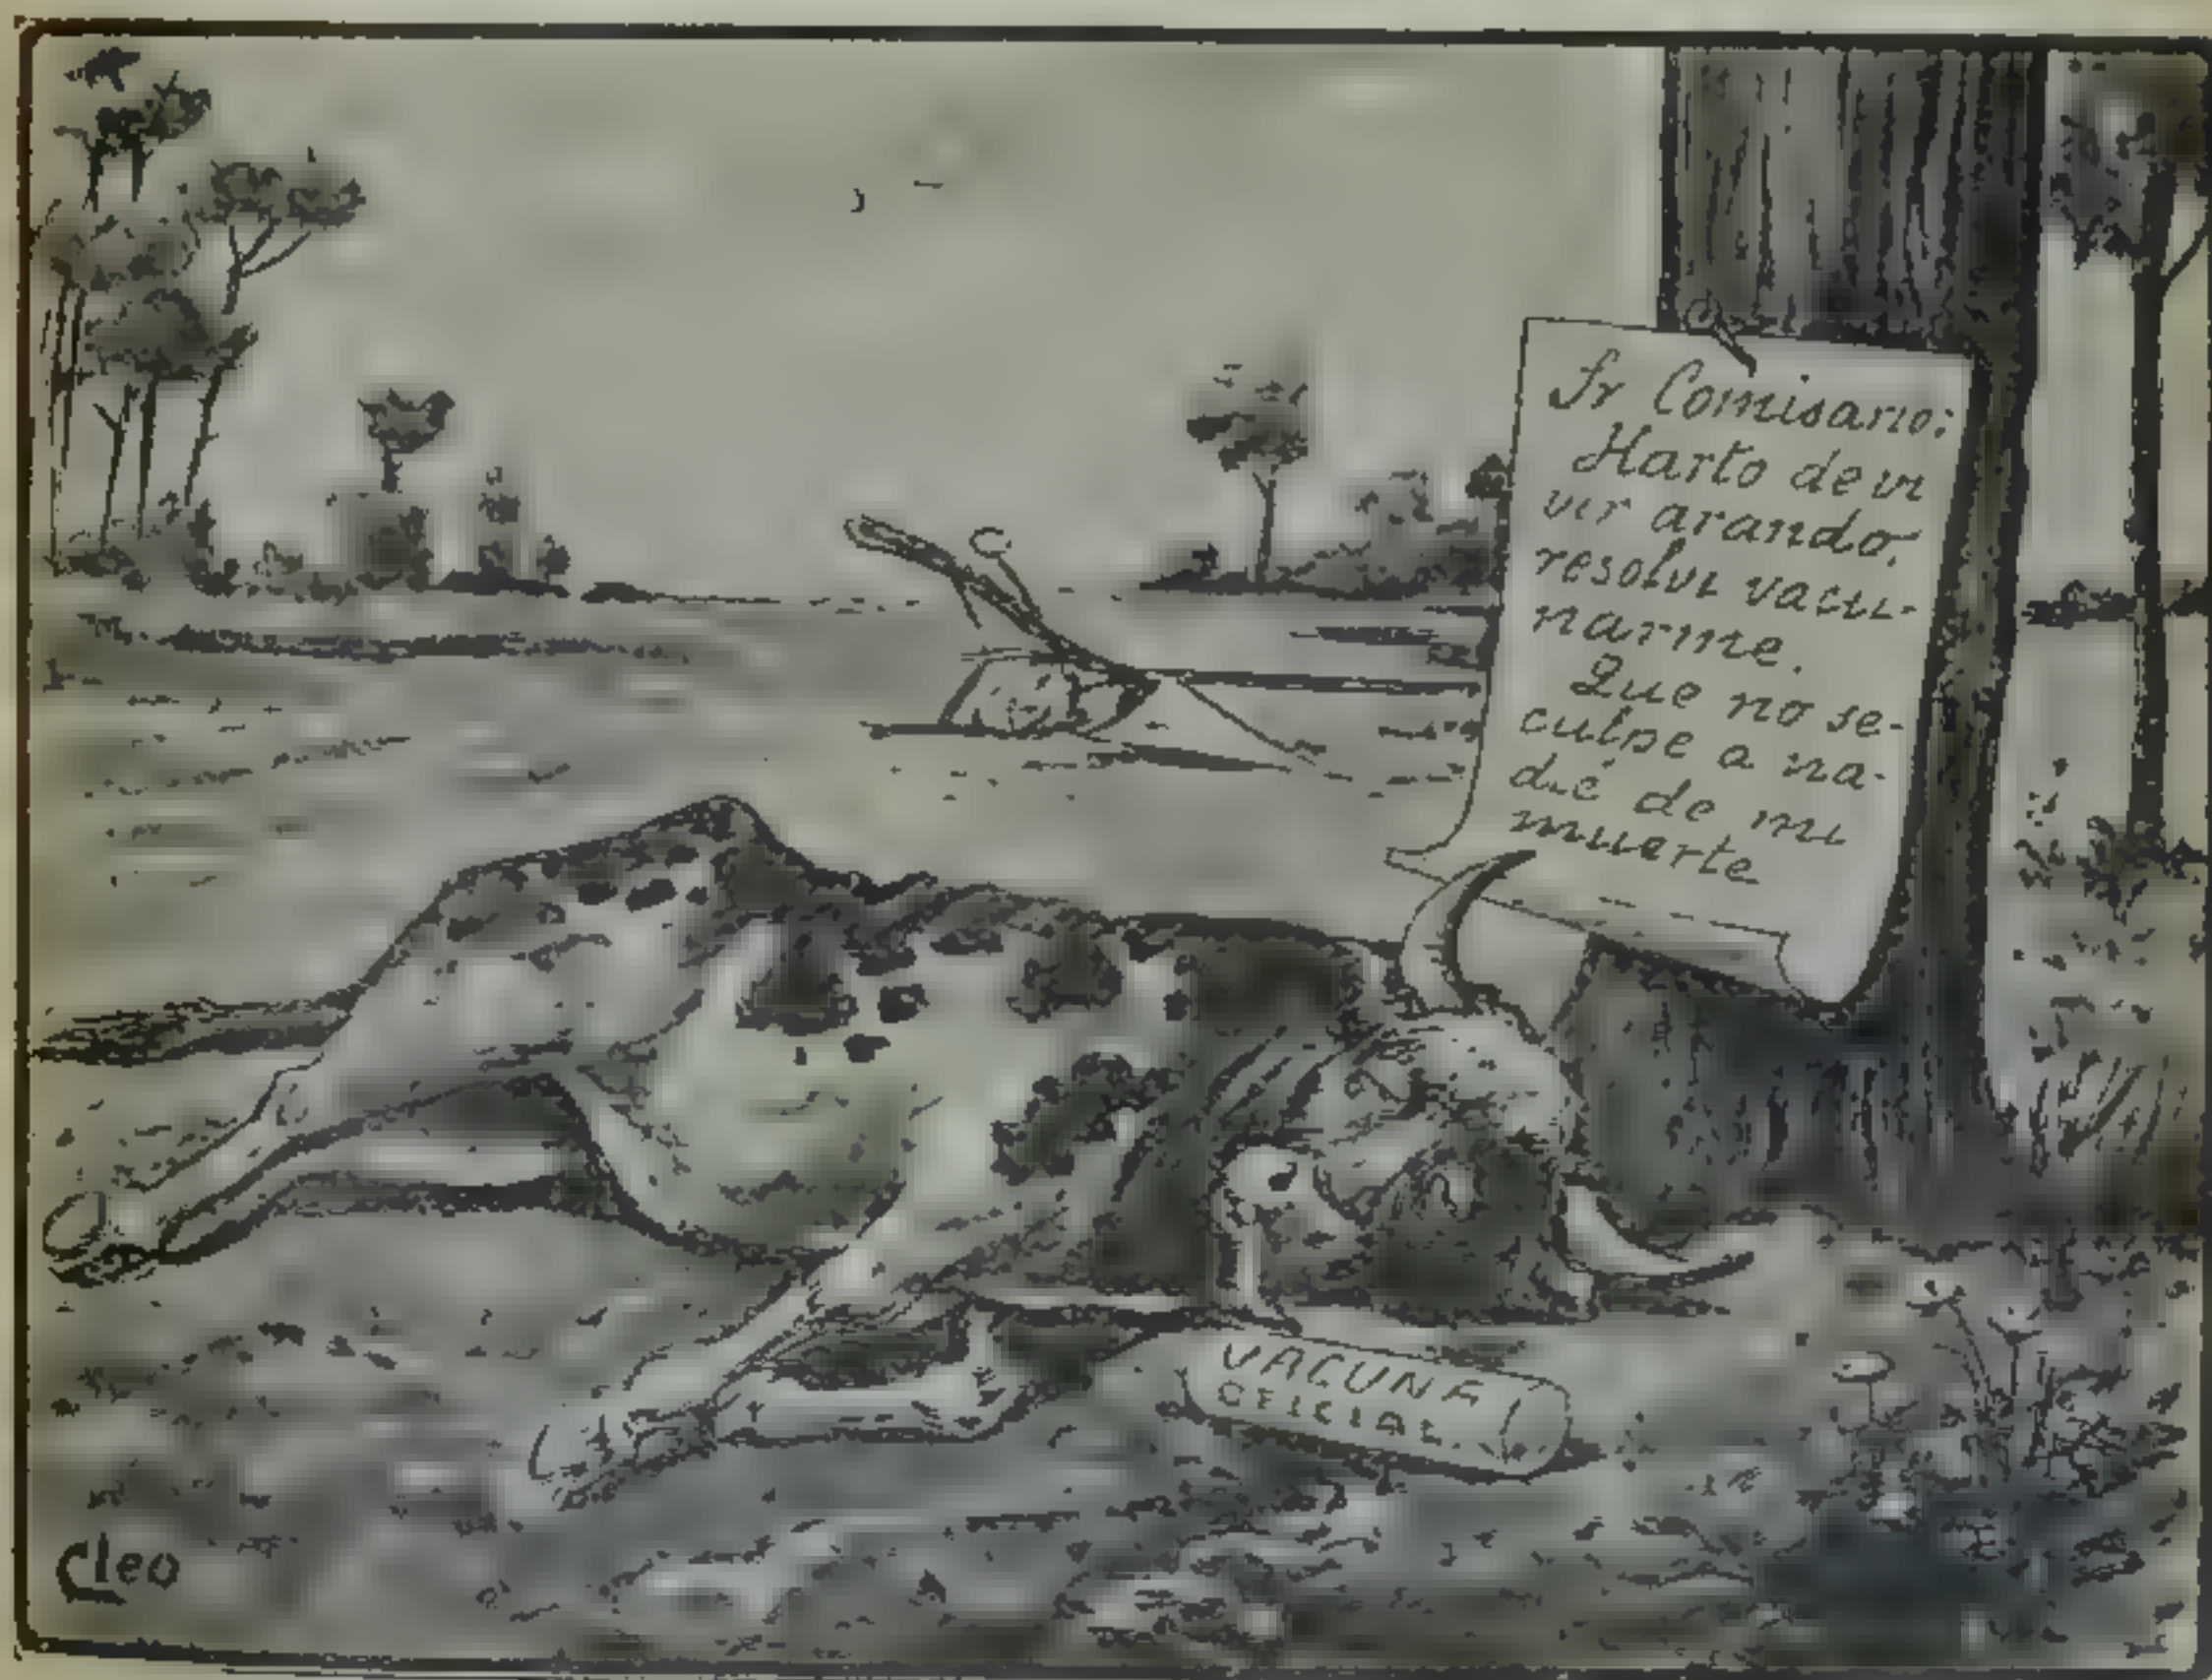 Sr Comisario:
Harto de vi
vir arando,
resolvi vacu-
narme.
Que no se-
culpe a na-
die de mi
muerte
VACUNA
OFICIAL.
Cleo